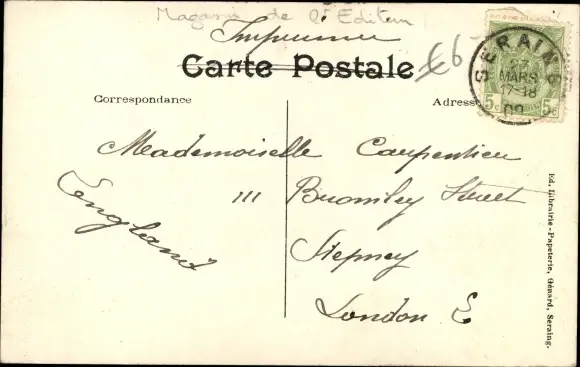 Magasin de l'Editeur
Imprimé
Carte Postale
£6
SERAING
23
MARS
17-18
09
5c 5c
Correspondance
Adresse
Mademoiselle Carpentier
111 Bromley Street
England
Stepney
London E
Ed. Librairie-Papeterie, Génard, Seraing.